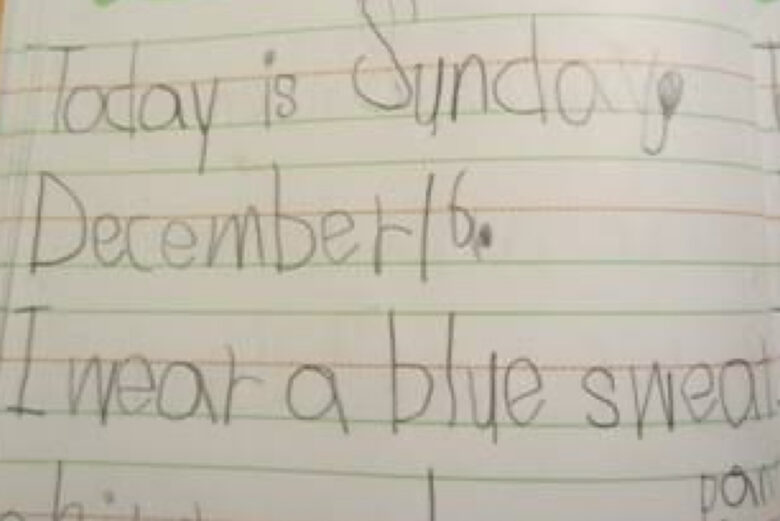 Today is Sunday,
December 16.
I wear a blue sweat